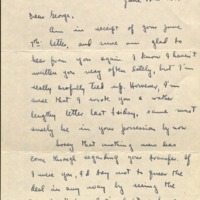 Dear George,
Am in receipt of your June
7th letter, and sure am glad to
hear from you again. I know I haven't
written you very often lately, but I'm
really awfully tied up. However, I'm
sure that I wrote you a rather
lengthy letter last today, same must
surely be in your possession by now
Sorry that nothing more has
come through regarding your transfer. If
I were you, I'd try not to queer the
deal in any way by using the